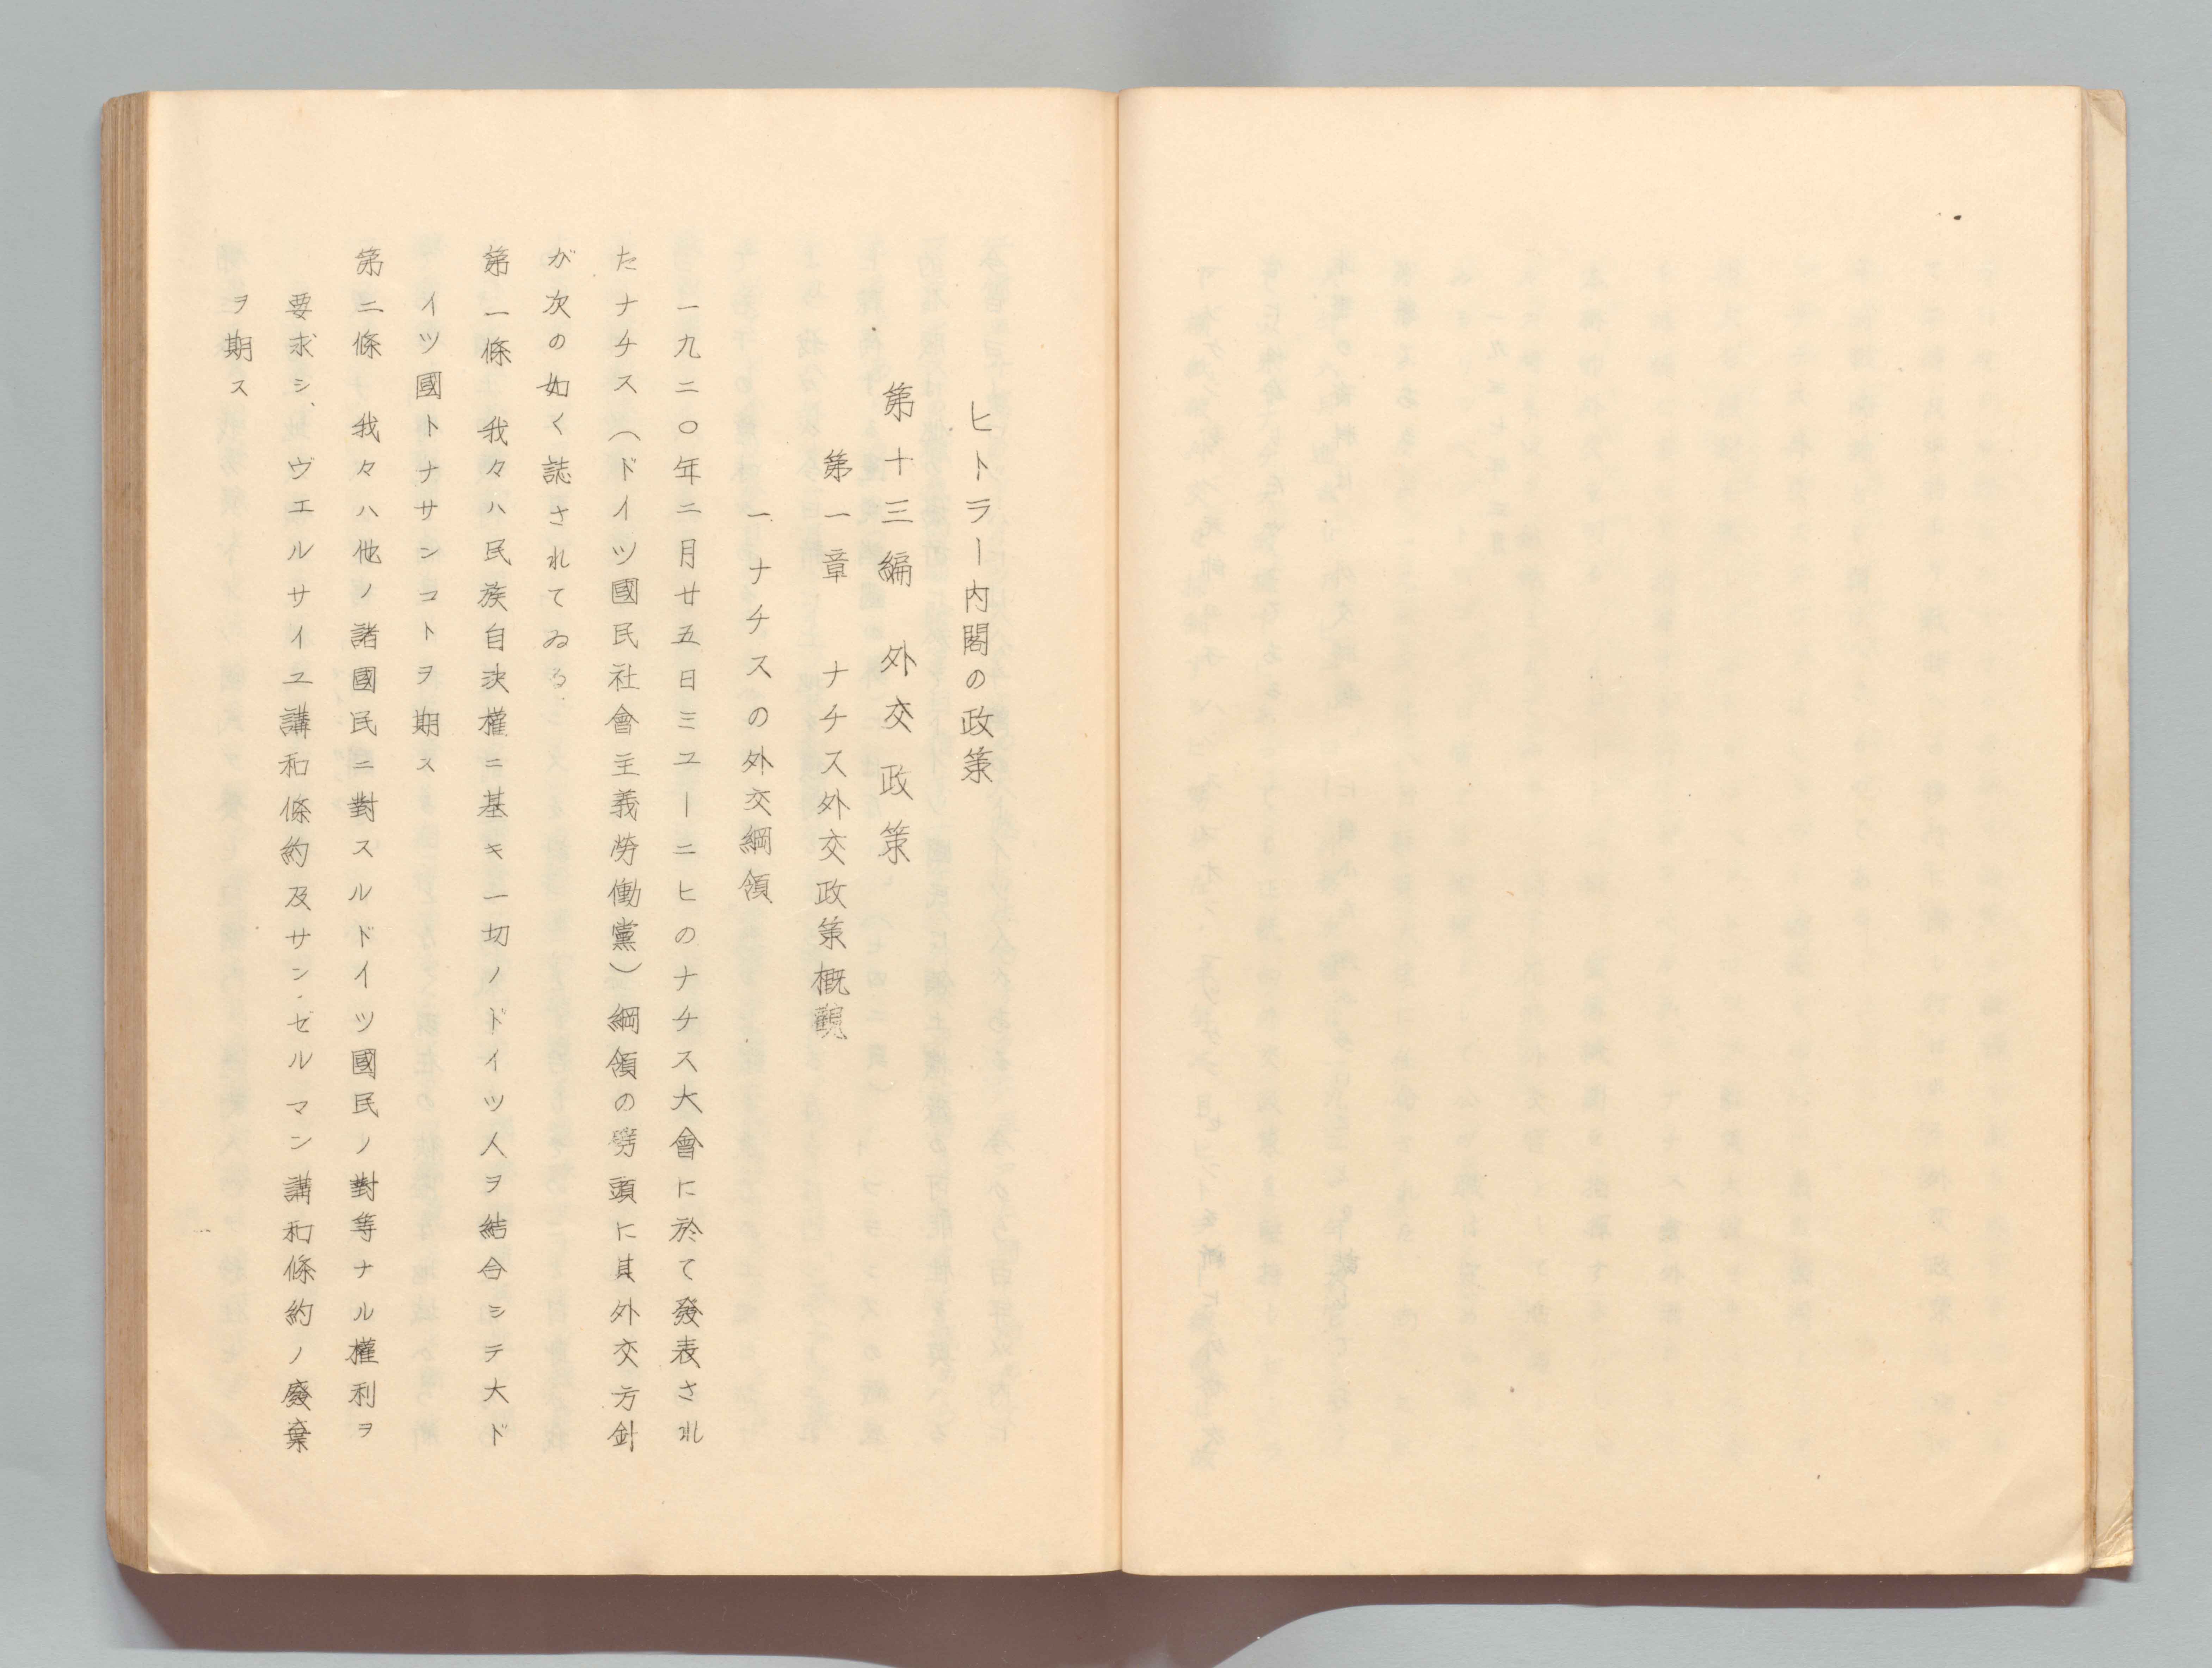 ヒトラー内閣の政策
第十三編　外交政策
第一章　ナチス外交政策概觀
一　ナチスの外交綱領
一九二〇年二月廿五日ミユーニヒのナチス大會に於て發表され
たナチス（ドイツ國民社會主義勞働黨）綱領の劈頭に其外交方針
が次の如く誌されてゐる．
第一條　我々ハ民族自決權ニ基キ一切ノドイツ人ヲ結合シテ大ド
イツ國トナサンコトヲ期ス
第二條　我々ハ他ノ諸國民ニ對スルドイツ國民ノ對等ナル權利ヲ
要求シ、ヴエルサイユ講和條約及サン．ゼルマン講和條約ノ廢棄
ヲ期ス